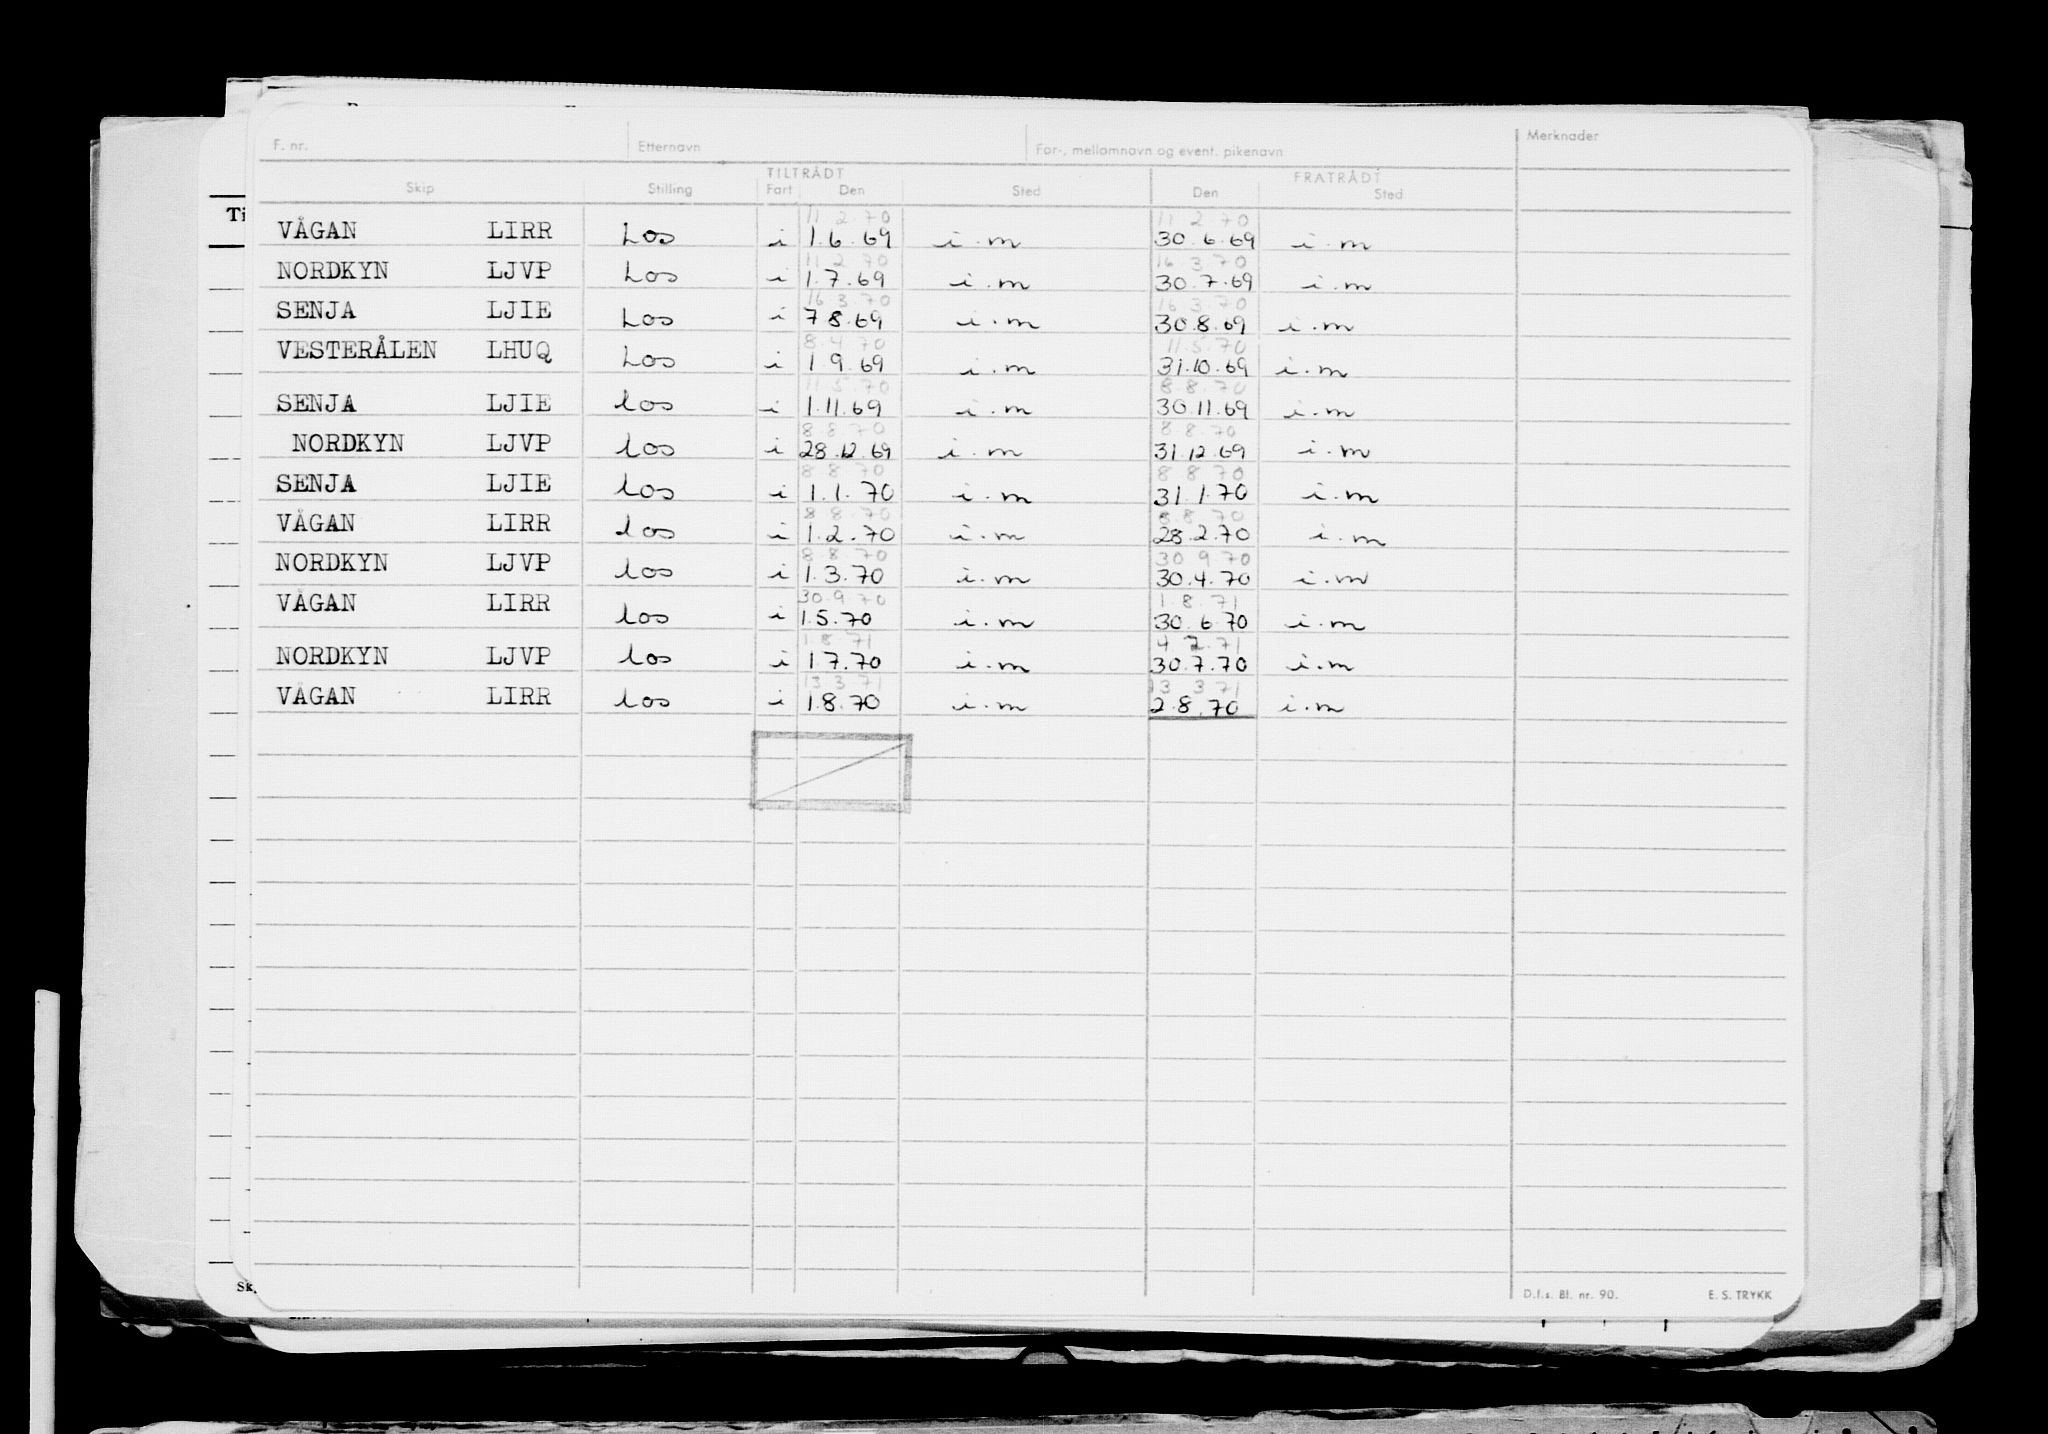 F. nr. Etternavn For-, mellomnavn og event. pikenavn Merknader
TILTRÅDT FRATRÅDT
Skip Stilling Fart Den Sted Den Sted
Ti
11 2.70 11 2 70
VÅGAN LIRR Los i 1.6.69 i.m 30.6.69 i.m
11 2 70 16 3.70
NORDKYN LJVP Los i 1.7.69 i.m 30.7.69 i.m
16 3.70 16 3.70
SENJA LJIE Los i 7 8.69 i.m 30.8.69 i.m
8.4 70 11.5.70
VESTERÅLEN LHUQ Los i 1 9.69 i.m 31.10.69 i.m
11.5.70 8.8.70
SENJA LJIE los i 1.11.69 i.m 30.11.69 i.m
8.8 70 8 8.70
NORDKYN LJVP los i 28.12.69 i.m 31.12.69 i.m
8 8 70 8 8 70
SENJA LJIE los i 1.1.70 i.m 31.1.70 i.m
8 8.70 8.8 70
VÅGAN LIRR los i 1.2.70 i.m 28.2.70 i.m
8 8.70 30 9 70
NORDKYN LJVP los i 1.3.70 i.m 30.4.70 i.m
30.9 70 1.8.71
VÅGAN LIRR los i 1.5.70 i.m 30.6.70 i.m
1 8 71 4 2.71
NORDKYN LJVP los i 1.7.70 i.m 30.7.70 i.m
13 3 71 13 3 71
VÅGAN LIRR los i 1.8.70 i.m 2.8.70 i.m
Sk.
D.f.s. Bl. nr. 90. E. S. TRYKK